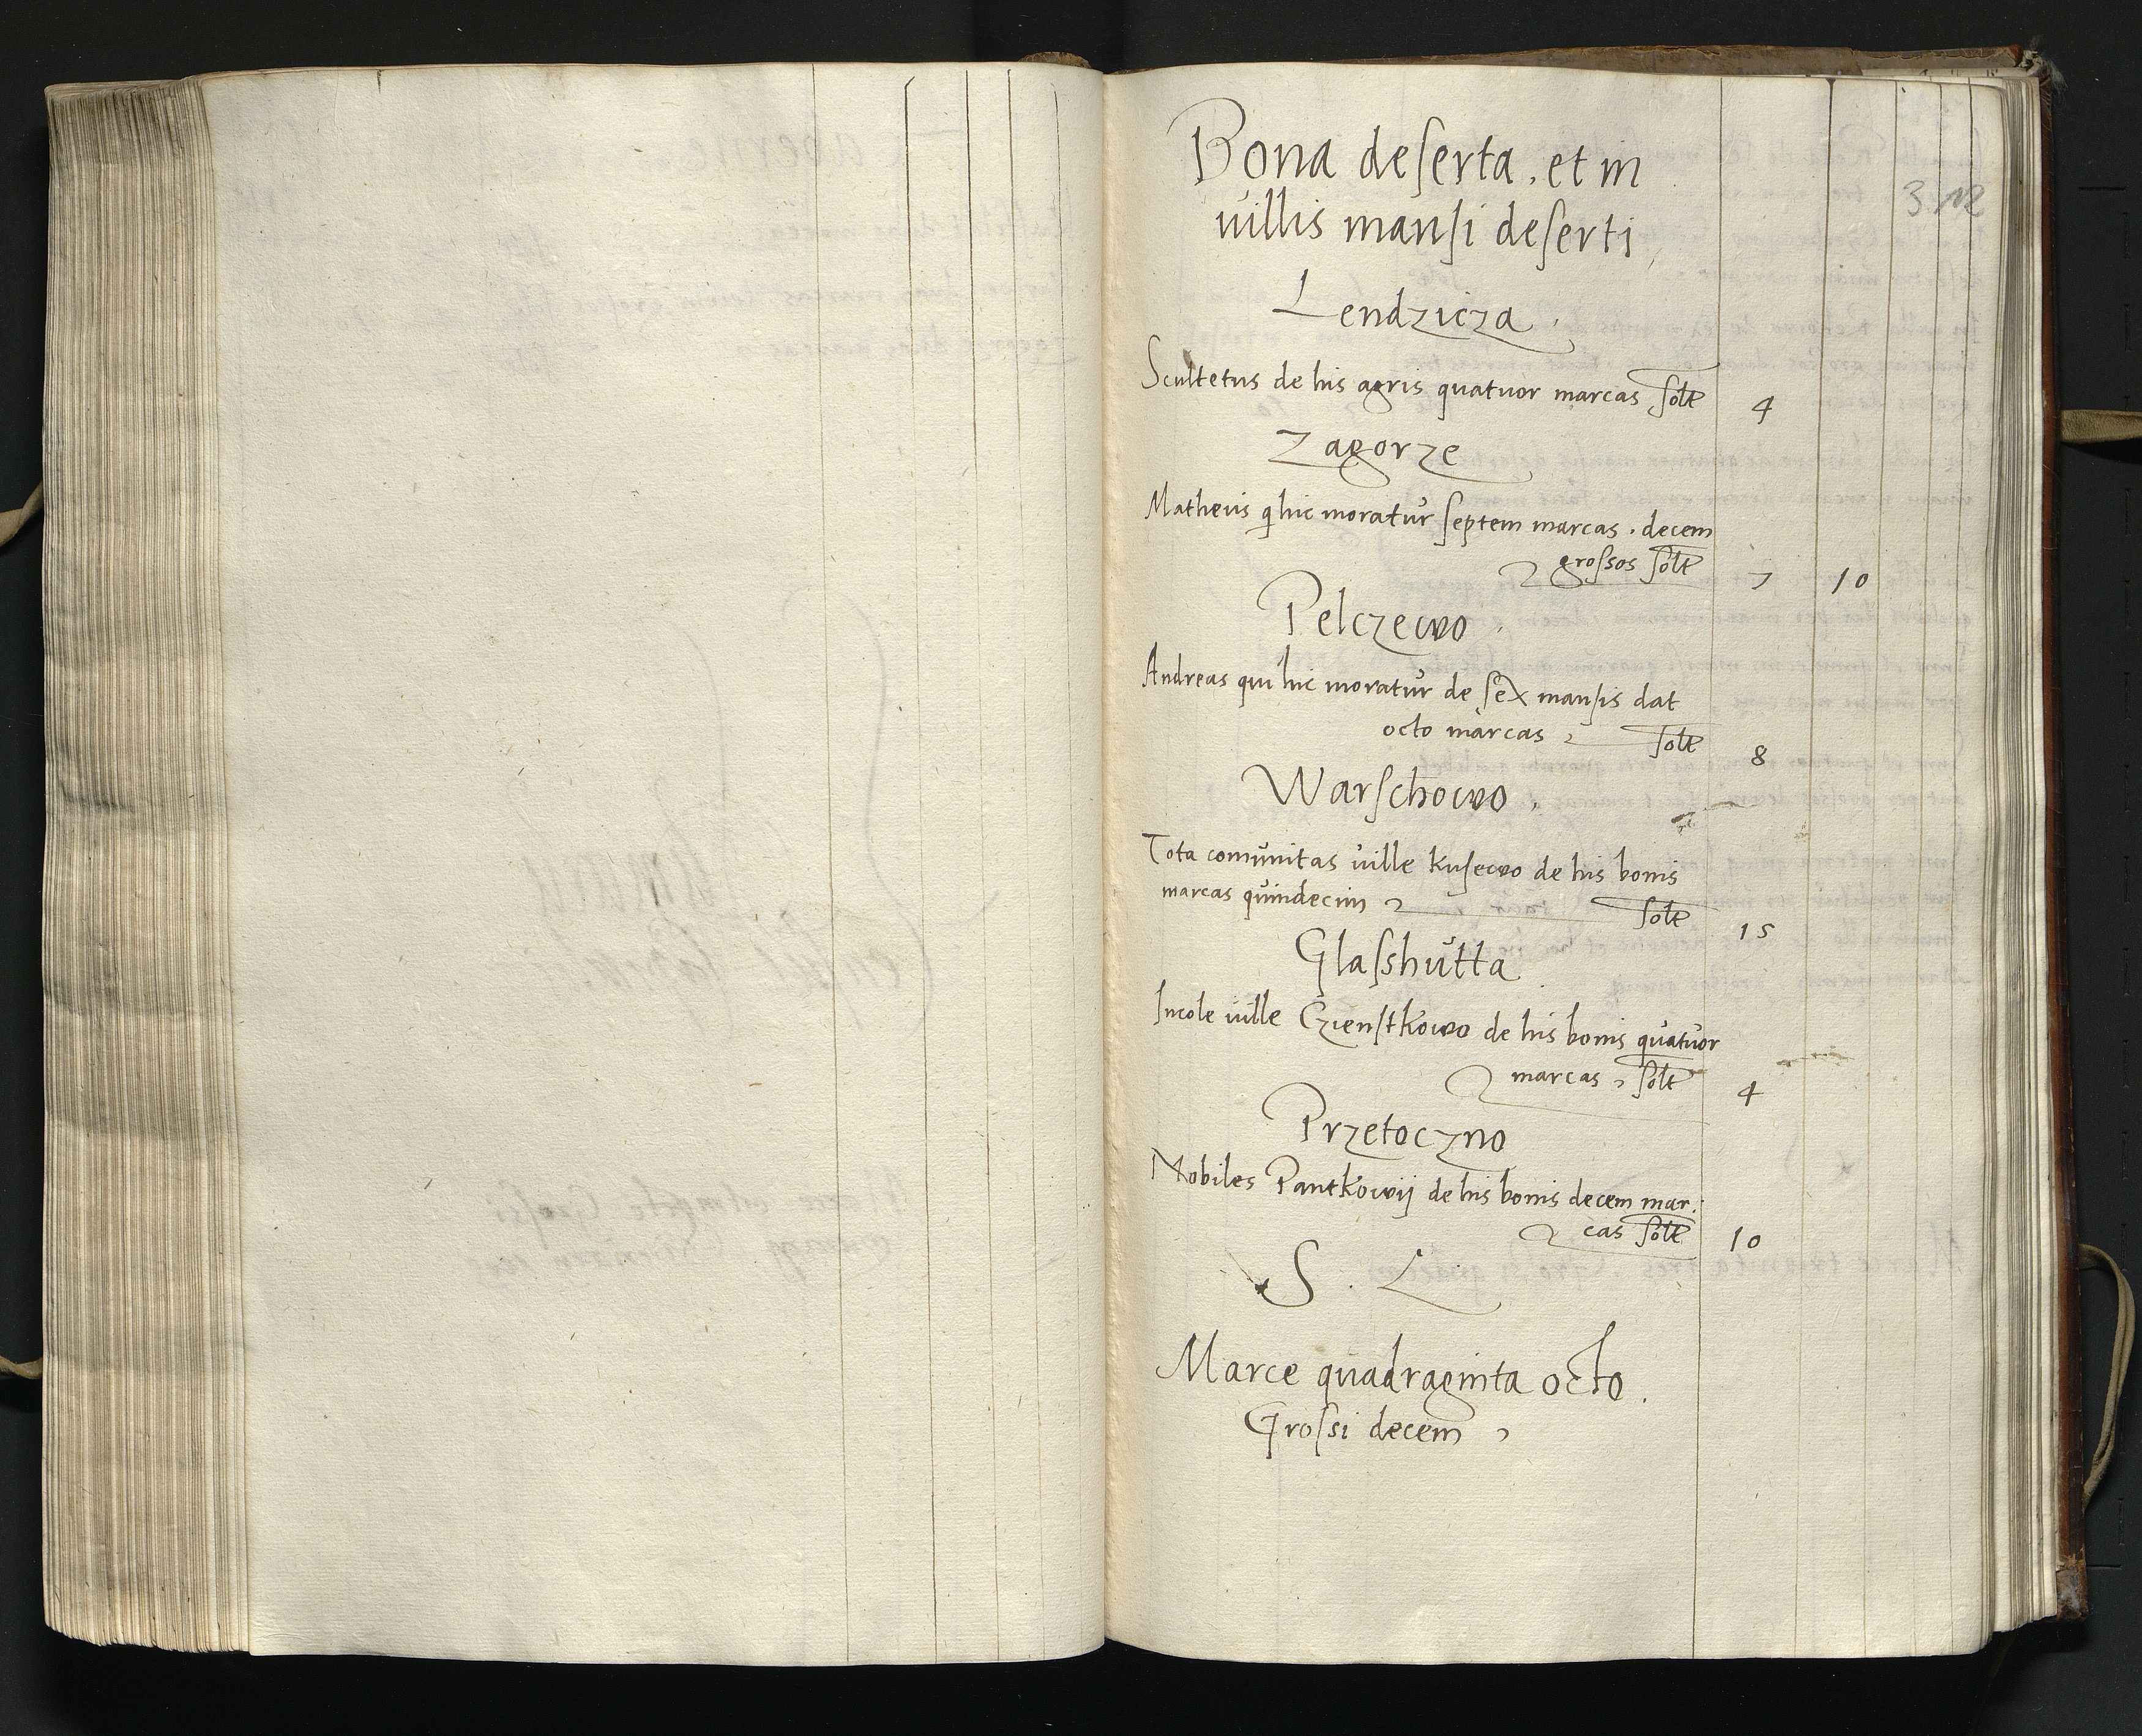 312
Bona deserta . et in
villis mansi deserti
Lendzicza .
Scultetus de his agris quatuor marcas solt 4
Zagorze
Matheus q hic moratur septem marcas . decem
grossos solt 7 10
Pelczewo .
Andreas qui hic moratur de sex mansis dat
octo marcas solt 8
Warschowo .
Tota comunitas ville Kusewo de his bonis
marcas quindecim solt 15
Glasshutta .
Incole ville Czenstkowo de his bonis quatuor
marcas solt 4
Przetoczno
Nobiles Pantkowij de his bonis decem mar:
cas solt 10
S . L
Marce quadraginta octo .
Grossi decem